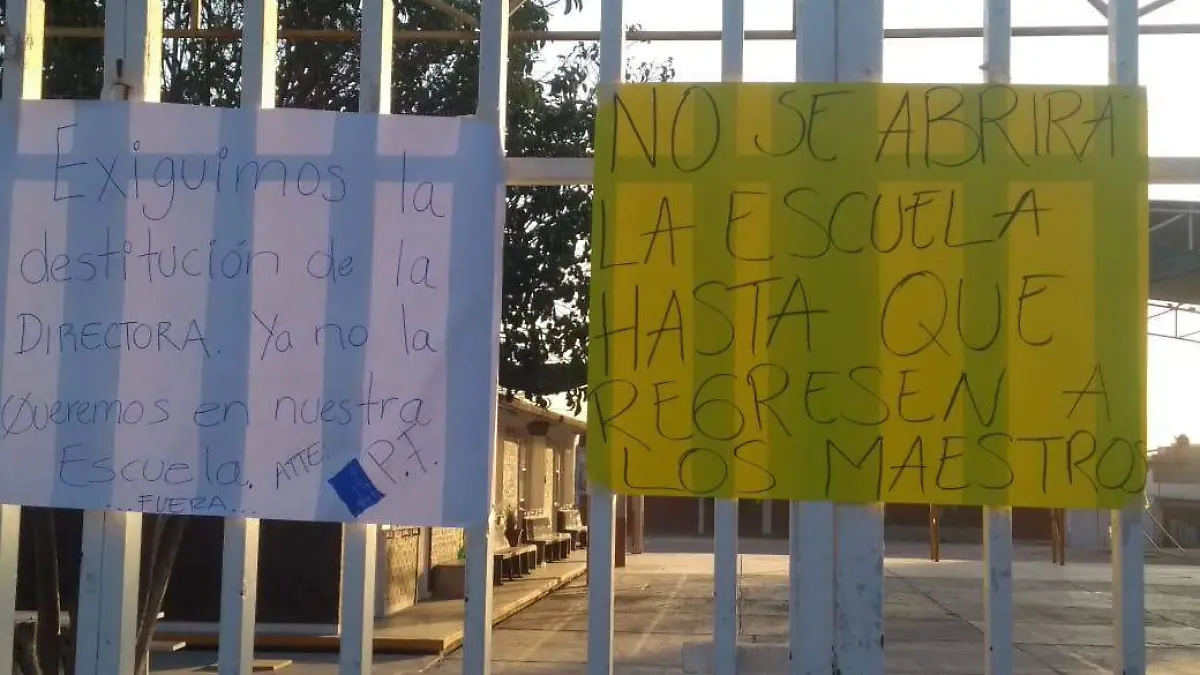 Exiguimos la
destitución de la
DIRECTORA. Ya no la
Queremos en nuestra
Escuela. ATTE. P.T.
...FUERA...
NO SE ABRIRA
LA ESCUELA
HASTA QUE
REGRESEN A
LOS MAESTROS